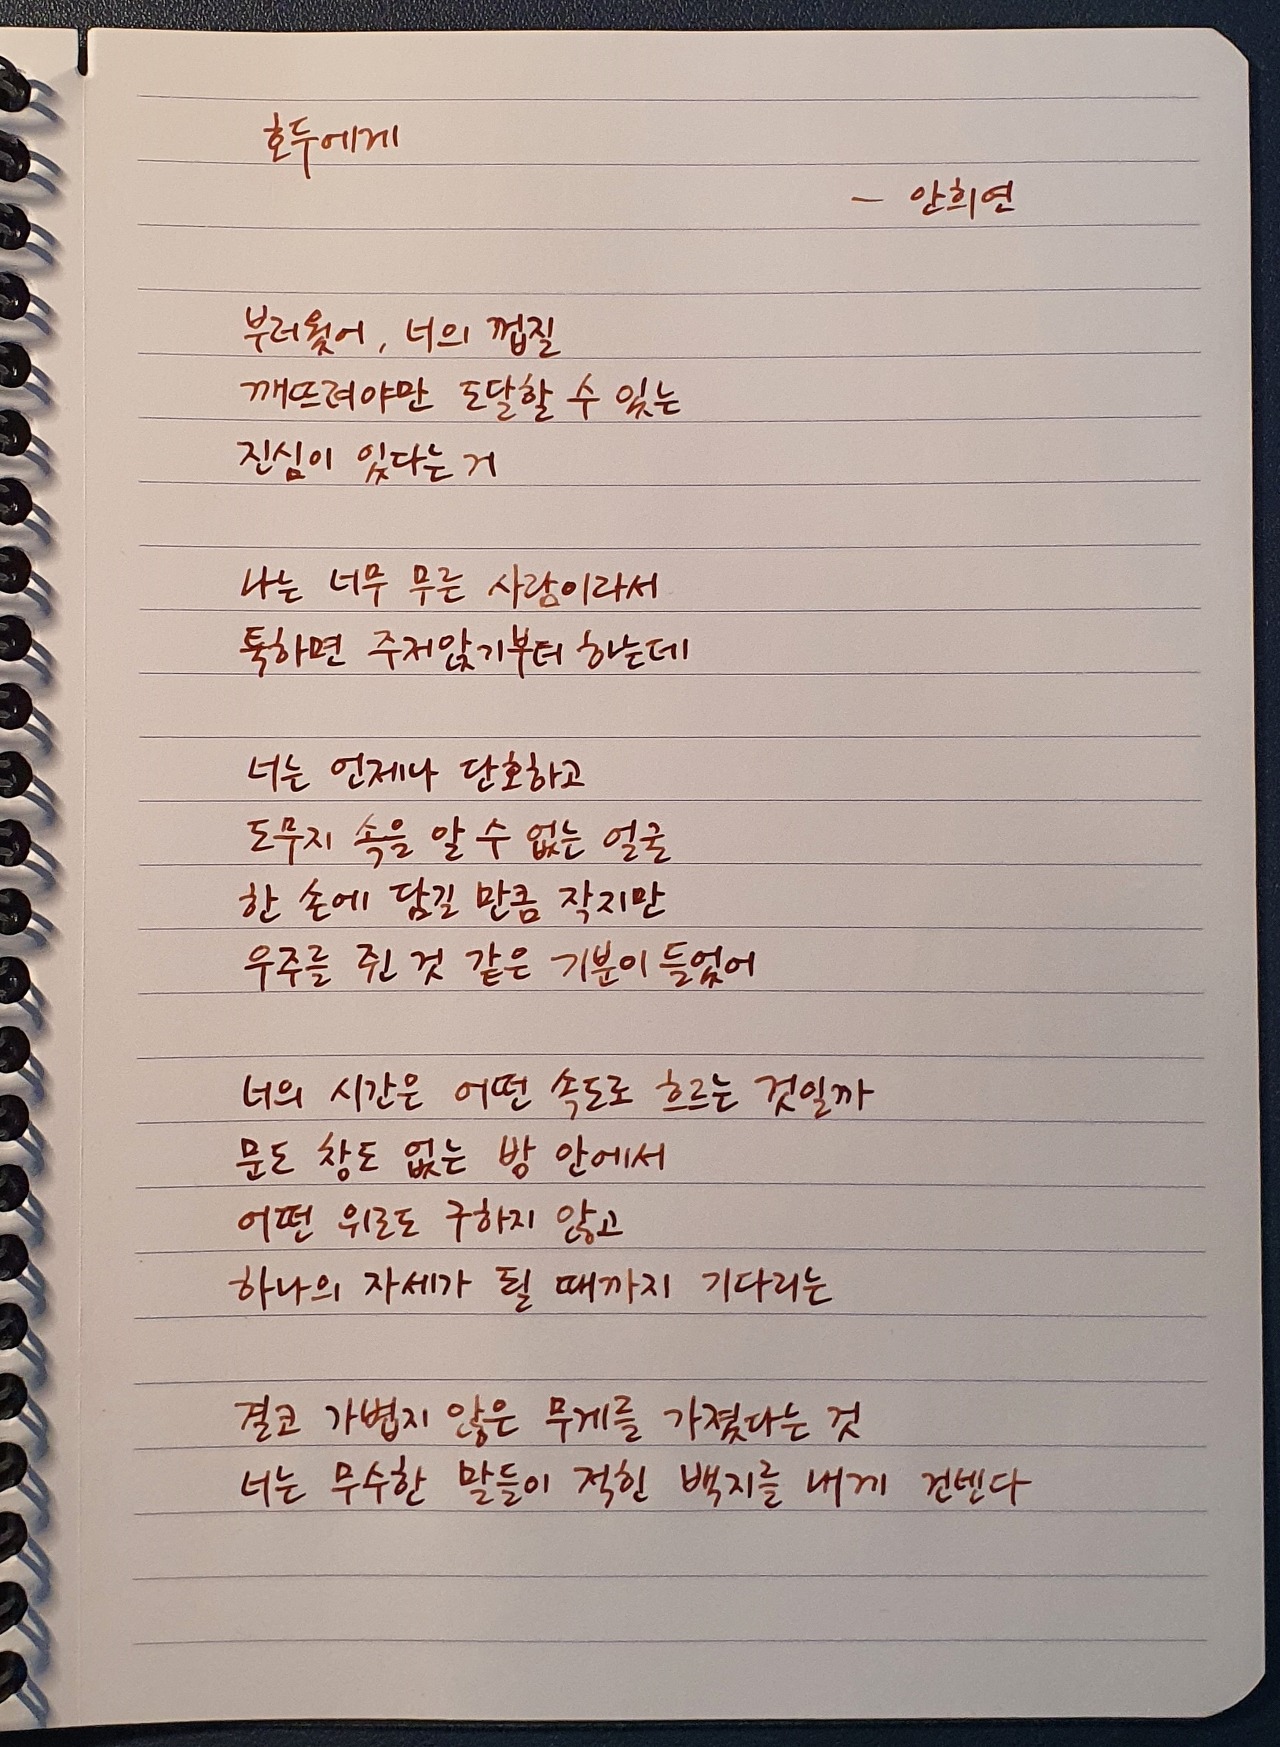 호두에게
- 안희연
부러웠어, 너의 껍질
깨뜨려야만 도달할 수 있는
진심이 있다는 거
나는 너무 무른 사람이라서
툭하면 주저앉기부터 하는데
너는 언제나 단호하고
도무지 속을 알 수 없는 얼굴
한 손에 담길 만큼 작지만
우주를 쥔 것 같은 기분이 들었어
너의 시간은 어떤 속도로 흐르는 것일까
문도 창도 없는 방 안에서
어떤 위로도 구하지 않고
하나의 자세가 될 때까지 기다리는
결코 가볍지 않은 무게를 가졌다는 것
너는 무수한 말들이 적힌 백지를 내게 건넨다